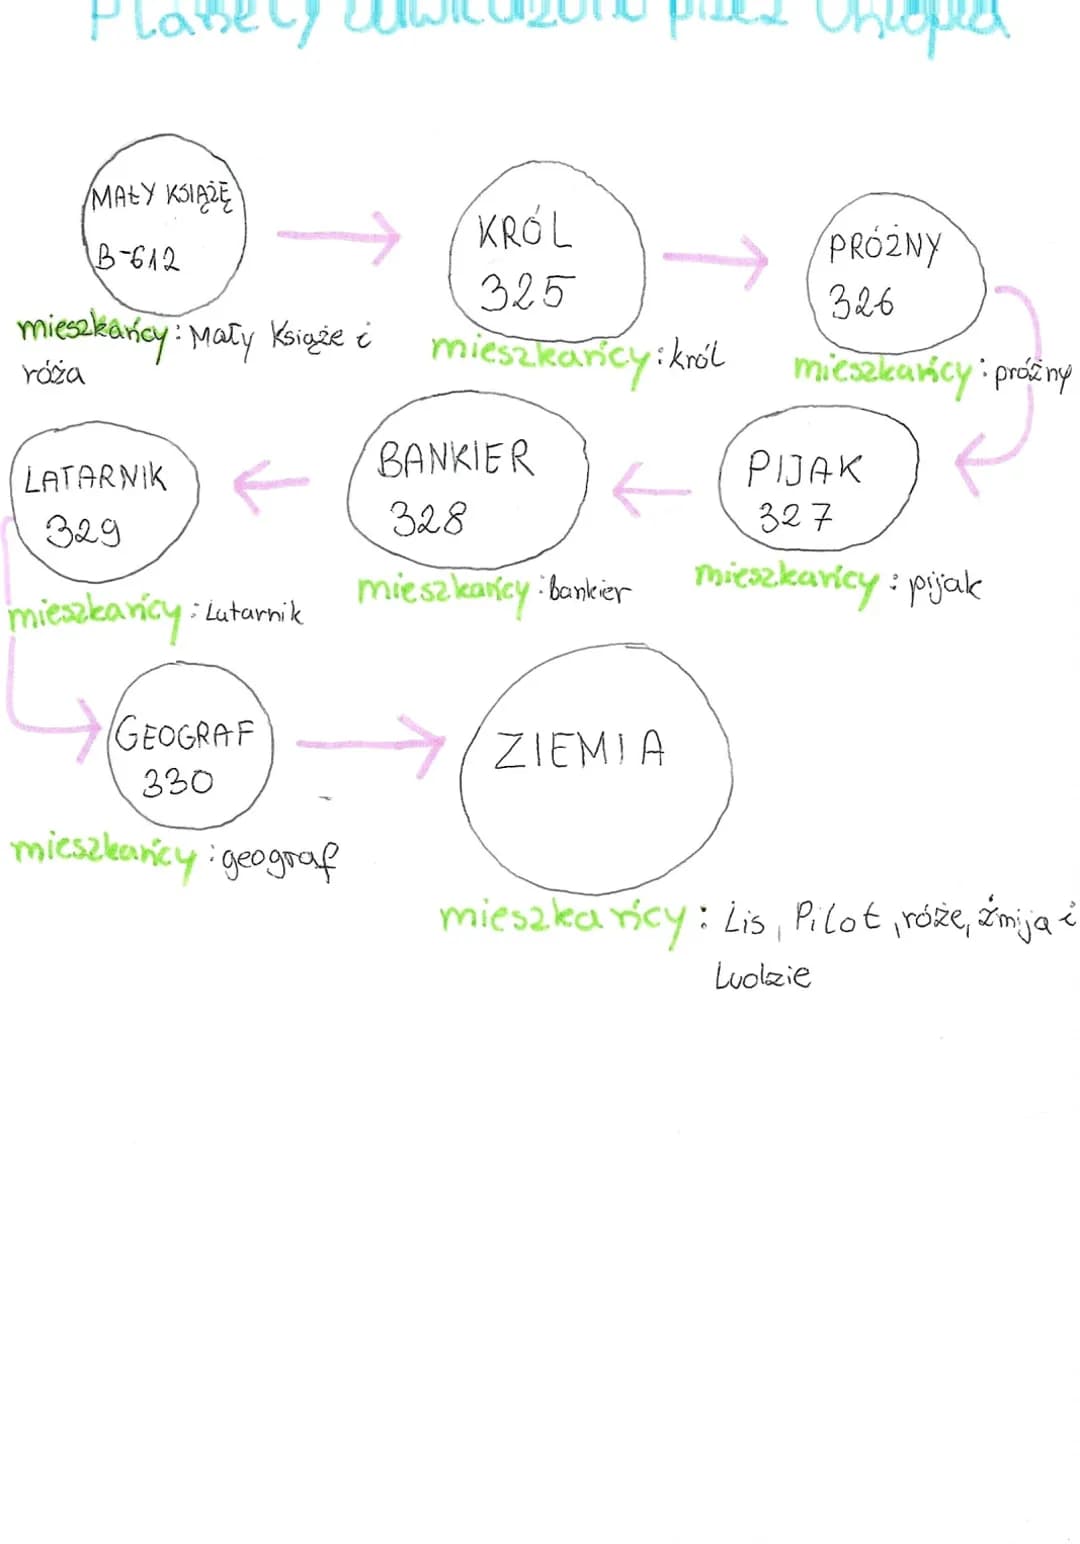 Planety odwiedzone przez Chłopca
MAŁY KSIĄŻĘ
B-612
mieszkańcy: Mały Książe i
róża
KRÓL
325
mieszkańcy: król
PRÓŻNY
326
mieszkańcy: próżny
PIJAK
327
mieszkańcy: pijak
BANKIER
328
mieszkańcy: bankier
LATARNIK
329
mieszkańcy: Latarnik
GEOGRAF
330
mieszkańcy: geograf
ZIEMIA
mieszkańcy: Lis, Pilot, róże, żmija i
Ludzie